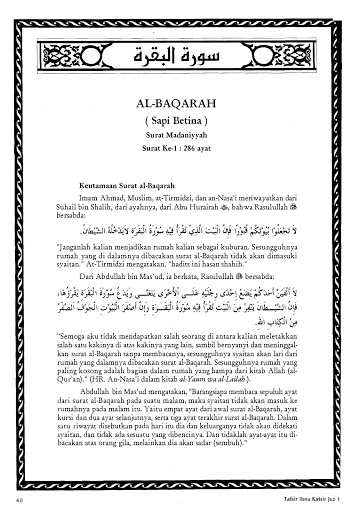 سورة البقرة
AL-BAQARAH
( Sapi Betina )
Surat Madaniyyah
Surat Ke-1 : 286 ayat
Keutamaan Surat al-Baqarah
Imam Ahmad, Muslim, at-Tirmidzi, dan an-Nasa'i meriwayatkan dari
Suhail bin Shalih, dari ayahnya, dari Abu Hurairah ﷺ, bahwa Rasulullah ﷺ
bersabda:
لاَ تَجْعَلُوْا بُيُوْتَكُمْ قُبُوْرًا فَإِنَّ الْبَيْتَ الَّذِيْ تُقْرَأُ فِيْهِ سُوْرَةُ الْبَقَرَةِ لاَيَدْخُلُهُ الشَّيْطَانُ.
"Janganlah kalian menjadikan rumah kalian sebagai kuburan. Sesungguhnya
rumah yang di dalamnya dibacakan surat al-Baqarah tidak akan dimasuki
syaitan." At-Tirmidzi mengatakan, "hadits ini hasan shahih."
Dari Abdullah bin Mas'ud, ia berkata, Rasulullah ﷺ bersabda:
لاَ أُلْفِيَنَّ أَحَدَكُمْ يَضَعُ إِحْدَى رِجْلَيْهِ عَلَى الأُخْرَى يَتَغَنَّى وَيَدَعُ سُوْرَةَ الْبَقَرَةِ يَقْرَؤُهَا،
فَإِنَّ الشَّيْطَانَ يَنْفِرُ مِنَ الْبَيْتِ تُقْرَأُ فِيْهِ سُوْرَةُ الْبَقَرَةِ وَإِنَّ أَصْفَرَ الْبُيُوْتِ الْجَوْفُ الصِّفْرُ
مِنَ الْكِتَابِ اللهِ.
"Semoga aku tidak mendapatkan salah seorang di antara kalian meletakkan
salah satu kakinya di atas kakinya yang lain, sambil bernyanyi dan meninggal-
kan surat al-Baqarah tanpa membacanya, sesungguhnya syaitan akan lari dari
rumah yang dalamnya dibacakan surat al-Baqarah. Sesungguhnya rumah yang
paling kosong adalah bagian dalam rumah yang hampa dari kitab Allah (al-
Qur'an)." (HR. An-Nasa'i dalam kitab al-Yaum wa al-Lailah.).
Abdullah bin Mas'ud mengatakan, "Barangsiapa membaca sepuluh ayat
dari surat al-Baqarah pada suatu malam, maka syaitan tidak akan masuk ke
rumahnya pada malam itu. Yaitu empat ayat dari awal surat al-Baqarah, ayat
kursi dan dua ayat selanjutnya, serta tiga ayat terakhir surat al-Baqarah. Dalam
satu riwayat disebutkan pada hari itu dia dan keluarganya tidak akan didekati
syaitan, dan tidak ada sesuatu yang dibencinya. Dan tidaklah ayat-ayat itu di-
bacakan atas orang gila, melainkan dia akan sadar (sembuh)."
40
Tafsir Ibnu Katsir Juz 1